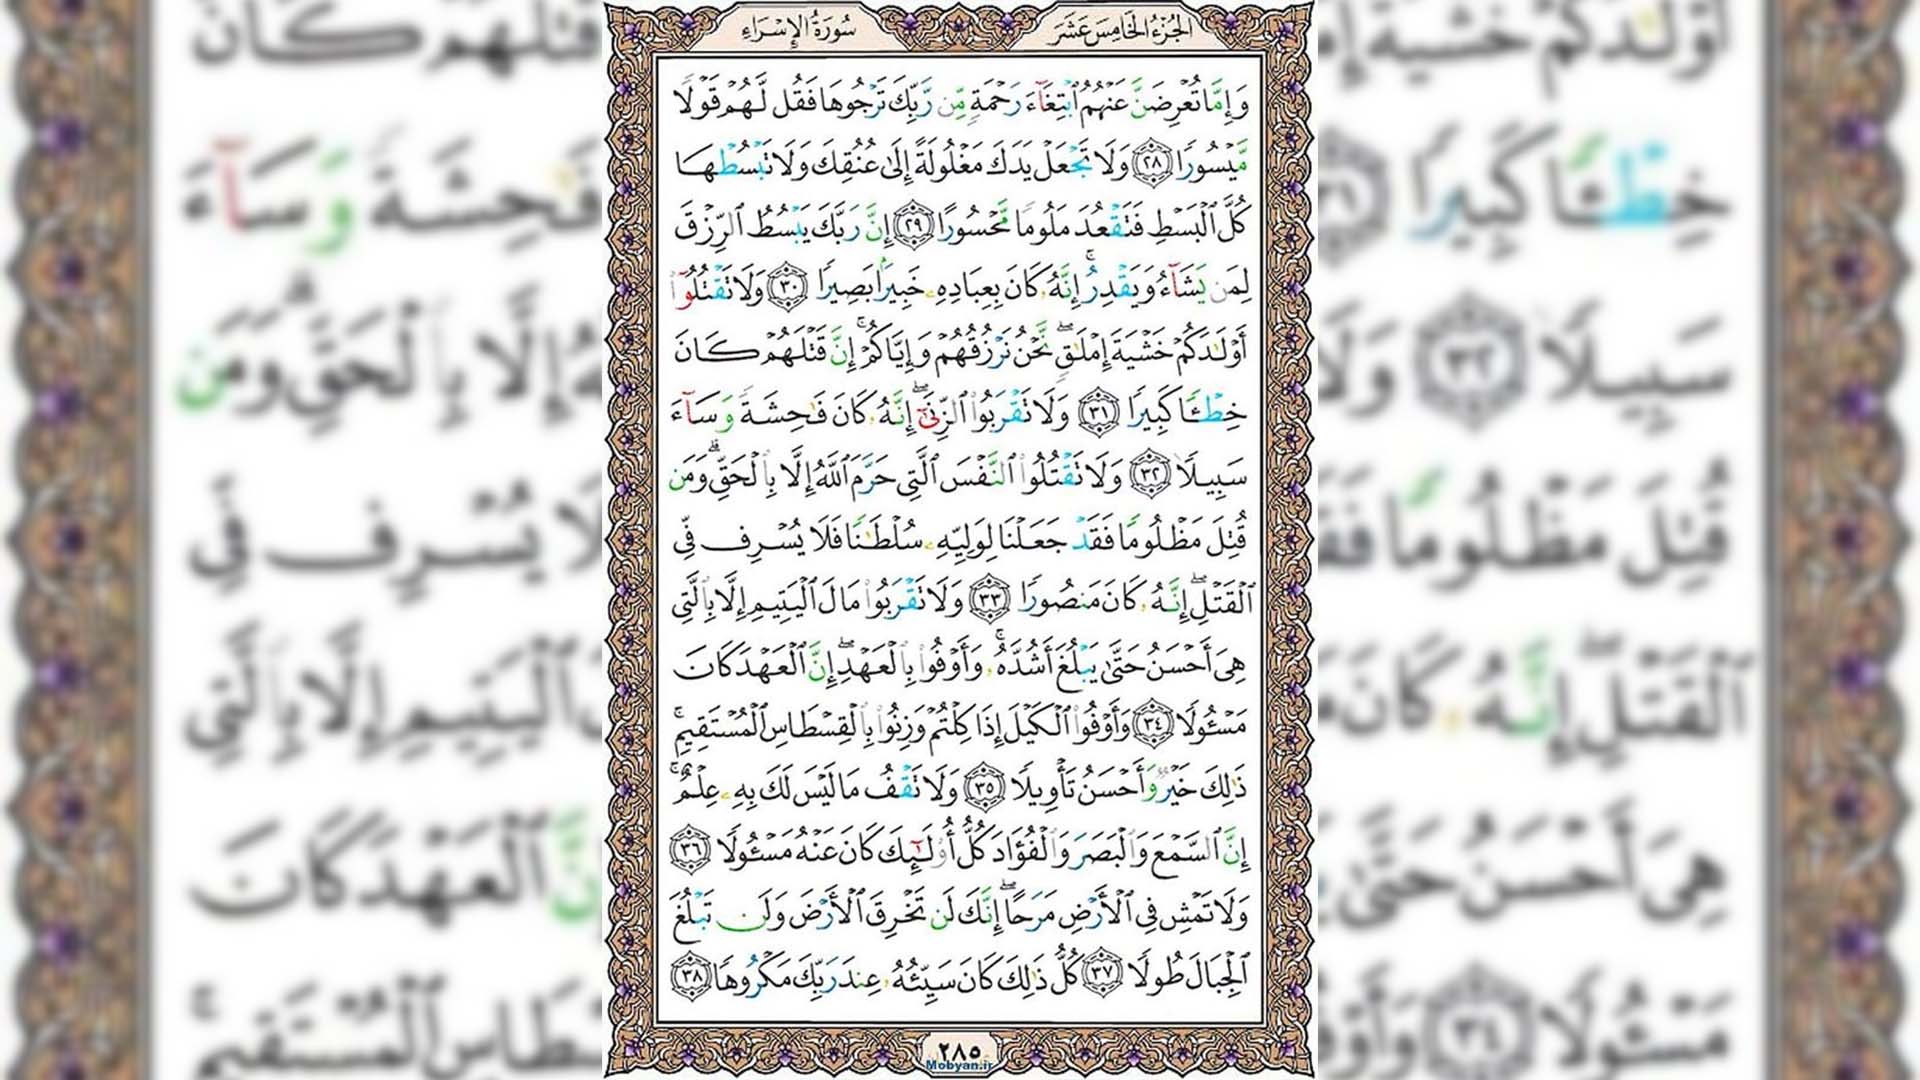 الجزء الخامس عشر
سورة الإسراء
وَإِمَّا تُعْرِضَنَّ عَنْهُمُ ٱبْتِغَآءَ رَحْمَةٍ مِّن رَّبِّكَ تَرْجُوهَا فَقُل لَّهُمْ قَوْلًا
مَّيْسُورًا ٢٨ وَلَا تَجْعَلْ يَدَكَ مَغْلُولَةً إِلَىٰ عُنُقِكَ وَلَا تَبْسُطْهَا
كُلَّ ٱلْبَسْطِ فَتَقْعُدَ مَلُومًا مَّحْسُورًا ٢٩ إِنَّ رَبَّكَ يَبْسُطُ ٱلرِّزْقَ
لِمَن يَشَآءُ وَيَقْدِرُ ۚ إِنَّهُۥ كَانَ بِعِبَادِهِۦ خَبِيرًۢا بَصِيرًا ٣٠ وَلَا تَقْتُلُوٓا۟
أَوْلَٰدَكُمْ خَشْيَةَ إِمْلَٰقٍ ۖ نَّحْنُ نَرْزُقُهُمْ وَإِيَّاكُمْ ۚ إِنَّ قَتْلَهُمْ كَانَ
خِطْـًٔا كَبِيرًا ٣١ وَلَا تَقْرَبُوا۟ ٱلزِّنَىٰٓ ۖ إِنَّهُۥ كَانَ فَٰحِشَةً وَسَآءَ
سَبِيلًا ٣٢ وَلَا تَقْتُلُوا۟ ٱلنَّفْسَ ٱلَّتِى حَرَّمَ ٱللَّهُ إِلَّا بِٱلْحَقِّ ۗ وَمَن
قُتِلَ مَظْلُومًا فَقَدْ جَعَلْنَا لِوَلِيِّهِۦ سُلْطَٰنًا فَلَا يُسْرِف فِّى
ٱلْقَتْلِ ۖ إِنَّهُۥ كَانَ مَنصُورًا ٣٣ وَلَا تَقْرَبُوا۟ مَالَ ٱلْيَتِيمِ إِلَّا بِٱلَّتِى
هِىَ أَحْسَنُ حَتَّىٰ يَبْلُغَ أَشُدَّهُۥ ۚ وَأَوْفُوا۟ بِٱلْعَهْدِ ۖ إِنَّ ٱلْعَهْدَ كَانَ
مَسْـُٔولًا ٣٤ وَأَوْفُوا۟ ٱلْكَيْلَ إِذَا كِلْتُمْ وَزِنُوا۟ بِٱلْقِسْطَاسِ ٱلْمُسْتَقِيمِ ۚ
ذَٰلِكَ خَيْرٌ وَأَحْسَنُ تَأْوِيلًا ٣٥ وَلَا تَقْفُ مَا لَيْسَ لَكَ بِهِۦ عِلْمٌ ۚ
إِنَّ ٱلسَّمْعَ وَٱلْبَصَرَ وَٱلْفُؤَادَ كُلُّ أُو۟لَٰٓئِكَ كَانَ عَنْهُ مَسْـُٔولًا ٣٦
وَلَا تَمْشِ فِى ٱلْأَرْضِ مَرَحًا ۖ إِنَّكَ لَن تَخْرِقَ ٱلْأَرْضَ وَلَن تَبْلُغَ
ٱلْجِبَالَ طُولًا ٣٧ كُلُّ ذَٰلِكَ كَانَ سَيِّئُهُۥ عِندَ رَبِّكَ مَكْرُوهًا ٣٨
٢٨٥
Mobyan.ir